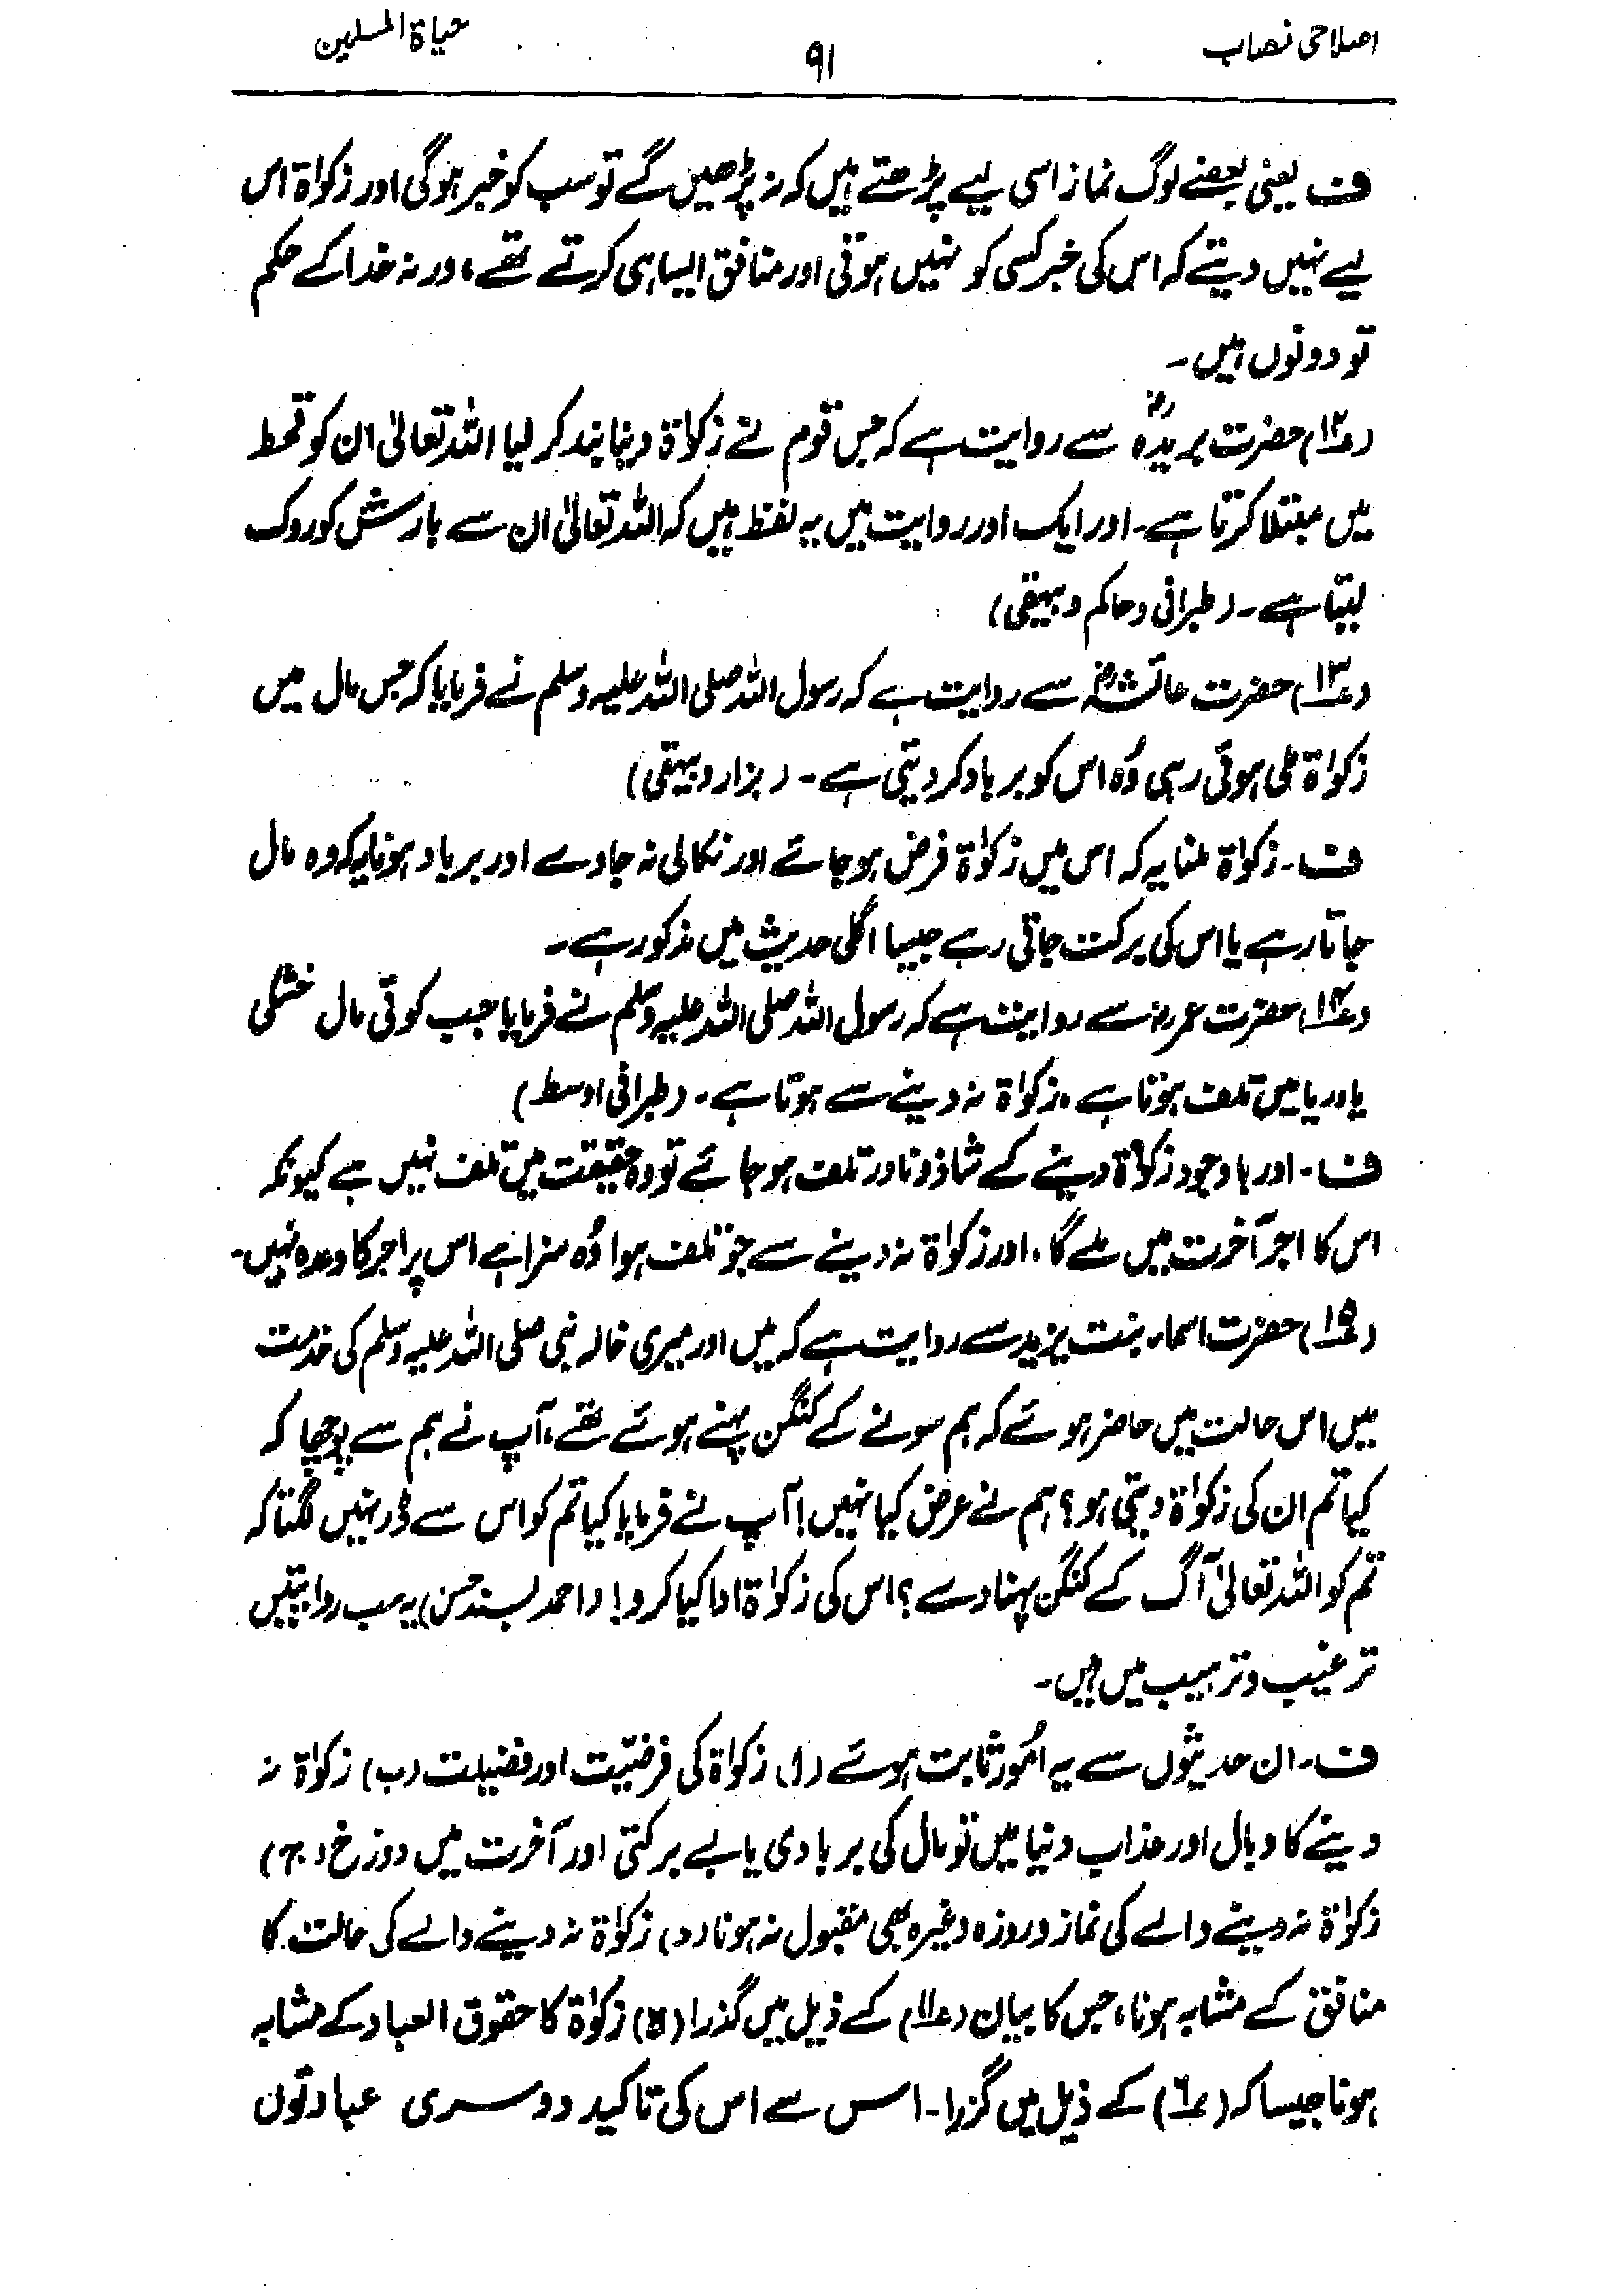 اصلاحی نصاب
۹۱
حیاۃ المسلمین
ف یعنی بعضے لوگ نماز اسی لیے پڑھتے ہیں کہ نہ پڑھیں گے تو سب کو خبر ہوگی اور زکوٰۃ اس
لیے نہیں دیتے کہ اس کی خبر کسی کو نہیں ہوتی اور منافق ایسا ہی کرتے تھے، ورنہ خدا کے حکم
تو دونوں ہیں۔
(۱۲) حضرت بریدہؓ سے روایت ہے کہ جس قوم نے زکوٰۃ دینا بند کر لیا اللہ تعالیٰ ان کو قحط
میں مبتلا کرتا ہے۔ اور ایک اور روایت میں یہ لفظ ہیں کہ اللہ تعالیٰ ان سے بارش کو روک
لیتا ہے۔ (طبرانی و حاکم و بیہقی)
(۱۳) حضرت عائشہؓ سے روایت ہے کہ رسول اللہ صلی اللہ علیہ وسلم نے فرمایا کہ جس مال میں
زکوٰۃ ملی ہوئی رہی وُہ اس کو برباد کر دیتی ہے۔ (بزار و بیہقی)
ف۔ زکوٰۃ ملنا یہ کہ اس میں زکوٰۃ فرض ہو جائے اور نکالی نہ جاوے اور برباد ہونا یہ کہ وہ مال
جاتا رہے یا اس کی برکت جاتی رہے جیسا اگلی حدیث میں مذکور ہے۔
(۱۴) حضرت عمرؓ سے روایت ہے کہ رسول اللہ صلی اللہ علیہ وسلم نے فرمایا جب کوئی مال خشکی
یا دریا میں تلف ہوتا ہے، زکوٰۃ نہ دینے سے ہوتا ہے۔ (طبرانی اوسط)
ف۔ اور باوجود زکوٰۃ دینے کے شاذ و نادر تلف ہو جائے تو وہ حقیقت میں تلف نہیں ہے کیونکہ
اس کا اجر آخرت میں ملے گا، اور زکوٰۃ نہ دینے سے جو تلف ہوا وُہ سزا ہے اس پر اجر کا وعدہ نہیں۔
(۱۵) حضرت اسماء بنت یزید سے روایت ہے کہ میں اور میری خالہ نبی صلی اللہ علیہ وسلم کی خدمت
میں اس حالت میں حاضر ہوئے کہ ہم سونے کے کنگن پہنے ہوئے تھے، آپ نے ہم سے پوچھا کہ
کیا تم ان کی زکوٰۃ دیتی ہو؟ ہم نے عرض کیا نہیں! آپ نے فرمایا کیا تم کو اس سے ڈر نہیں لگتا کہ
تم کو اللہ تعالیٰ آگ کے کنگن پہنا دے؟ اس کی زکوٰۃ ادا کیا کرو! (احمد بسند حسن) یہ سب روایتیں
ترغیب و ترہیب میں ہیں۔
ف۔ ان حدیثوں سے یہ اُمور ثابت ہوئے (ا) زکوٰۃ کی فرضیّت اور فضیلت (ب) زکوٰۃ نہ
دینے کا وبال اور عذاب دنیا میں تو مال کی بربادی یا بے برکتی اور آخرت میں دوزخ (ج)
زکوٰۃ نہ دینے والے کی نماز و روزہ وغیرہ بھی مقبول نہ ہونا (د) زکوٰۃ نہ دینے والے کی حالت کا
منافق کے مشابہ ہونا، جس کا بیان (۱۱) کے ذیل میں گذرا (ہ) زکوٰۃ کا حقوق العباد کے مشابہ
ہونا جیسا کہ (۶) کے ذیل میں گزرا۔ اس سے اس کی تاکید دوسری عبادتوں